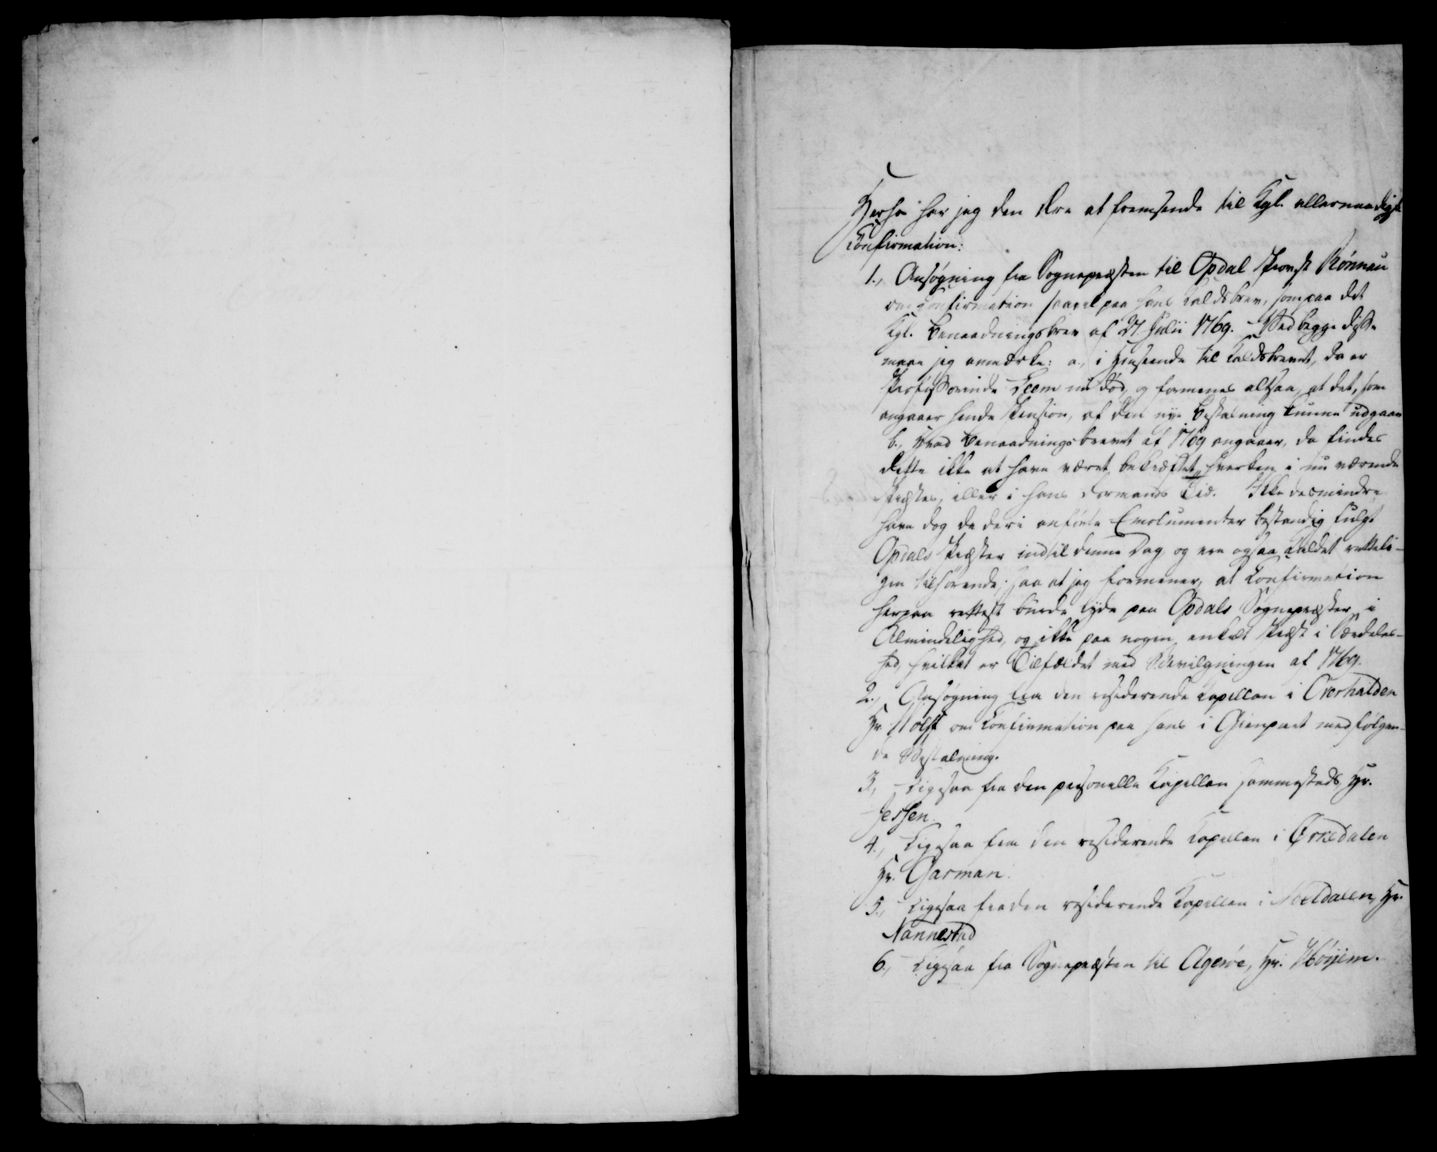 Herhos har jeg den Ære at fremsende til Kgl. allernaadigst
Confirmation:
1., Ansøgning fra Sognepræsten til Opdal Provst Rønnau
om Confirmation saavel paa hans Kaldsbrev, som paa det
Kgl. Benaadningsbrev af 27 Julii 1769. – Ved begge disse
maae jeg anmærke: a., i Henseende til Kaldsbrevet, da er
Professorinde Leem nu død, og formenes altsaa, at det, som
angaaer hendes Pension, af den nye Bestalning kunne udgaae
b., hvad Benaadningsbrevet af 1769 angaaer, da findes
dette ikke at have været bekræftet, hverken i nu værende
Præstes, eller i hans Formands Tid. Ikke desmindre
have dog de deri anførte Emolumenter bestandig fulgt
Opdals Præster indtil denne Dag, og ere ogsaa Kaldet retteli-
gen tilhørende: saa at jeg formener, at Confirmation
herpaa rettest burde lyde paa Opdals Sognepræster i
Almindelighed, og ikke paa nogen enkelt Præst i Særdeles-
hed, hvilket er Tilfældet med Bevilgningen af 1769.
2., Ansøgning fra den residerende Kapellan i Overhalden
Hr. Holst om Confirmation paa hans i Gienpart medfølgen-
de Bestalning.
3., Ligesaa fra den personelle Kapellan sammesteds, Hr.
Jessen
4., Ligesaa fra den residerende Kapellan i Ørkedalen
Hr. Garman.
5., Ligesaa fra den residerende Kapellan i Meldalen, Hr.
Nannestad
6., Ligesaa fra Sognepræsten til Agerøe, Hr. Høyem.